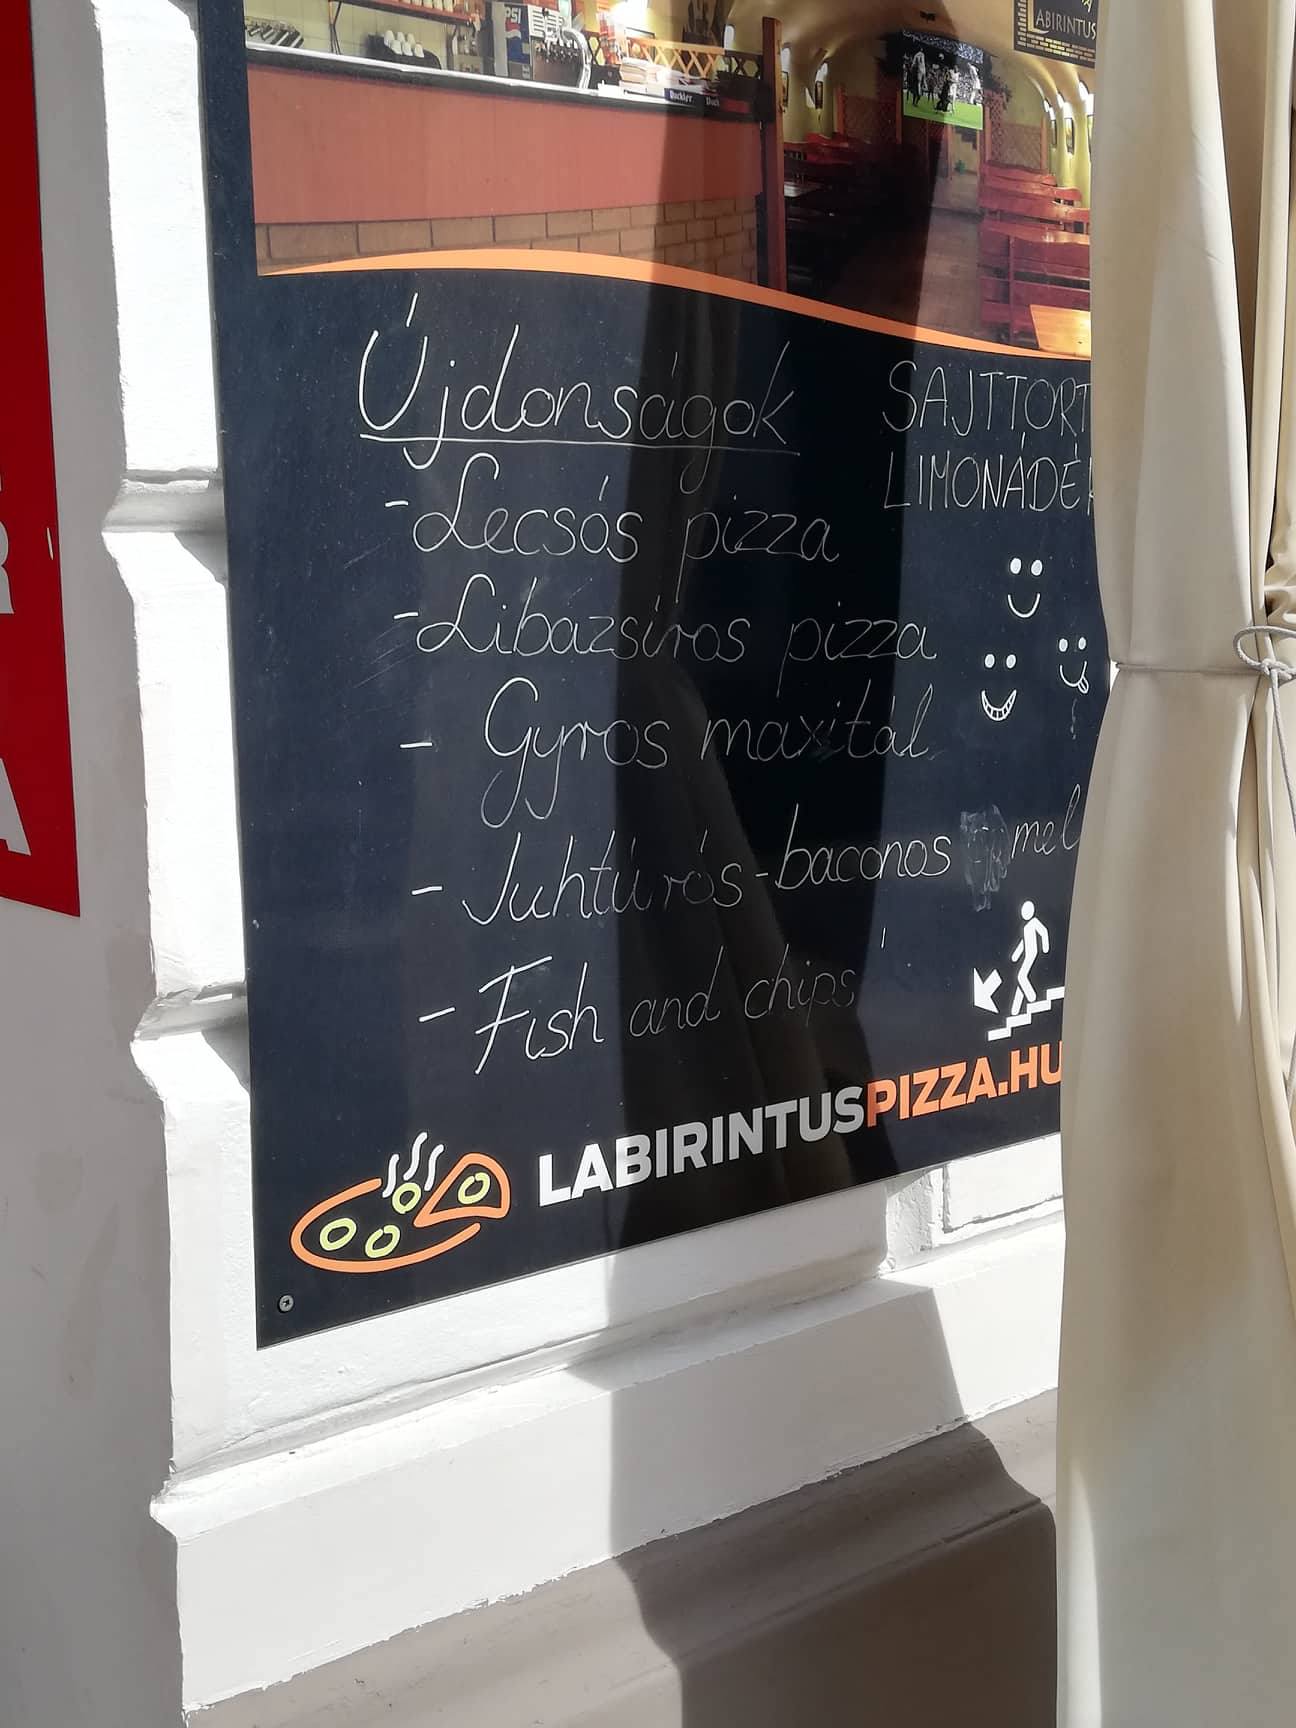 LABIRINTUS
PEPSI
Buckler
Újdonságok
- Lecsós pizza
- Libazsíros pizza
- Gyros maxitál
- Juhtúrós-baconos mel
- Fish and chips
SAJTTORT
LIMONÁDÉ
LABIRINTUSPIZZA.HU